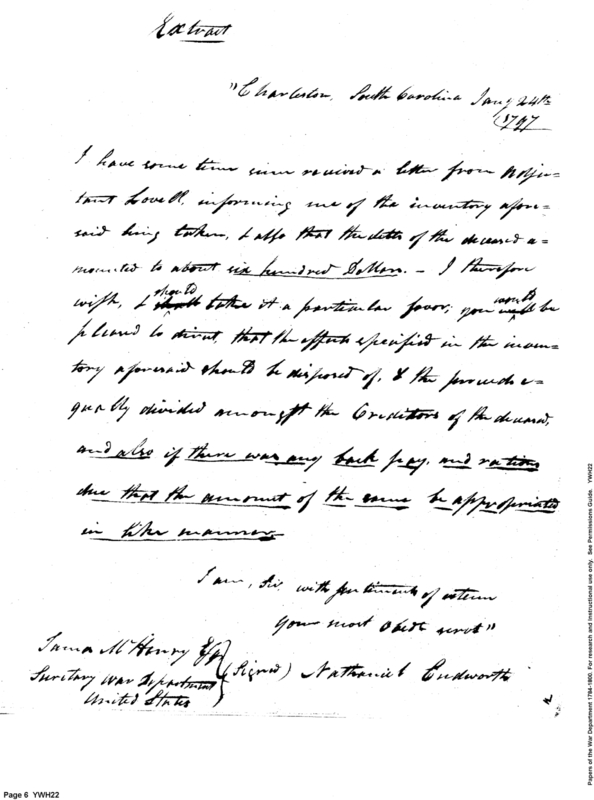 Extract
"Charleston, South Carolina Jany 24th
1797
I have some time since received a letter from Adju=
tant Lovell, informing me of the inventory afore=
said being taken, & also that the debts of the deceased a=
mounted to about six hundred Dollars. – I therefore
wish, & shall should take it a particular favor, you will would be
pleased to direct, that the effects specified in the inven=
tory aforesaid should be disposed of, & the proceeds e=
qually divided amongst the Creditors of the deceased,
and also if there was any back pay, and rations
due that the amount of the same be appropriated
in like manner.
I am, Sir, with sentiments of esteem
your most obedt servt"
James McHenry Esqr
Secretary War Department
United States
(Signed) Nathaniel Cudworth
Page 6 YWH22
Papers of the War Department 1784-1800. For research and instructional use only. See Permissions Guide. YWH22